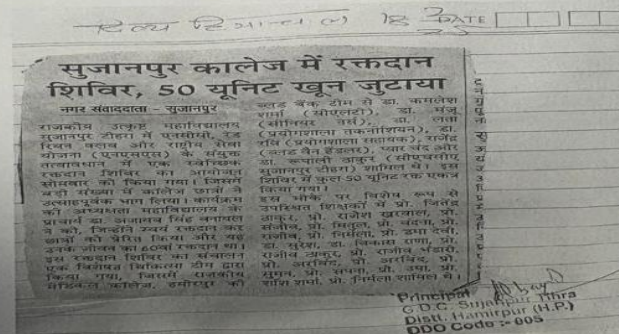 दिव्य हिमाचल
DATE
सुजानपुर कालेज में रक्तदान
शिविर, 50 यूनिट खून जुटाया
नगर संवाददाता - सुजानपुर
राजकीय उत्कृष्ट महाविद्यालय
सुजानपुर टीहरा में एनसीसी, रेड
रिबन क्लब और राष्ट्रीय सेवा
योजना (एनएसएस) के संयुक्त
तत्वावधान में एक स्वैच्छिक
रक्तदान शिविर का आयोजन
सोमवार को किया गया। जिसमें
बड़ी संख्या में कॉलेज छात्रों ने
उत्साहपूर्वक भाग लिया। कार्यक्रम
की अध्यक्षता महाविद्यालय के
प्राचार्य डा. अजायब सिंह बनयाल
ने की, जिन्होंने स्वयं रक्तदान कर
छात्रों को प्रेरित किया और यह
उनके जीवन का 60वां रक्तदान था।
इस रक्तदान शिविर का संचालन
एक विशेषज्ञ चिकित्सा टीम द्वारा
किया गया, जिसमें राजकीय
मेडिकल कॉलेज, हमीरपुर की
ब्लड बैंक टीम से डा. कमलेश
शर्मा (सीएलटी), डा. मंजू
(सीनियर नर्स), डा. लता
(प्रयोगशाला तकनीशियन), डा.
रवि (प्रयोगशाला सहायक), राजेंद्र
(ब्लड बैन हैंडलर), प्यार चंद और
डा. रूपाली ठाकुर (सीएचसीए
सुजानपुर टीहरा) शामिल थे। इस
शिविर में कुल 50 यूनिट रक्त एकत्र
किया गया।
इस मौके पर विशेष रूप से
उपस्थित शिक्षकों में प्रो. जितेंद्र
ठाकुर, प्रो. राजेश खरवाल, प्रो.
संजीव, प्रो. मितुल, प्रो. वंदना, प्रो.
राजीव, प्रो. निर्मला, प्रो. उमा देवी,
डा. सुरेश, डा. विकास राणा, प्रो.
राजीव ठाकुर, प्रो. राजीव भंडारी,
प्रो. अरविंद, प्रो. अरविंद, प्रो.
सुमन, प्रो. सपना, प्रो. उषा, प्रो.
शशि शर्मा, प्रो. निर्मला शामिल थे।
Principal
G.D.C. Sujanpur Tihra
Distt. Hamirpur (H.P.)
DDO Code :- 005